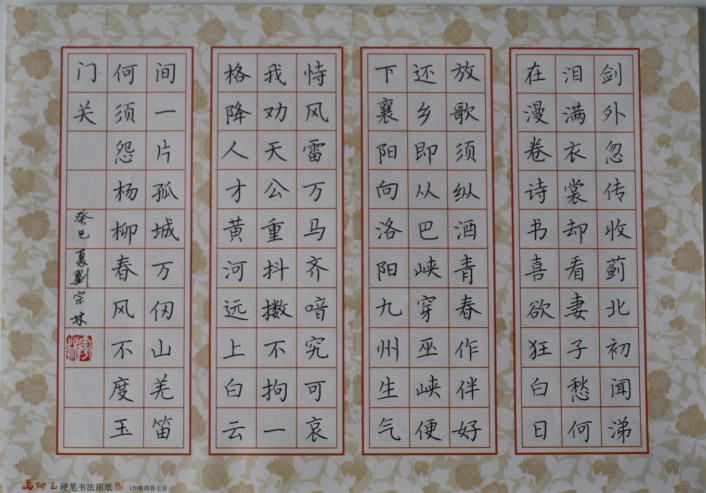 剑外忽传收蓟北初闻涕
泪满衣裳却看妻子愁何
在漫卷诗书喜欲狂白日
放歌须纵酒青春作伴好
还乡即从巴峡穿巫峡便
下襄阳向洛阳九州生气
恃风雷万马齐喑究可哀
我劝天公重抖擞不拘一
格降人才黄河远上白云
间一片孤城万仞山羌笛
何须怨杨柳春风不度玉
门关
癸巳夏劉宗林
硬笔书法用纸